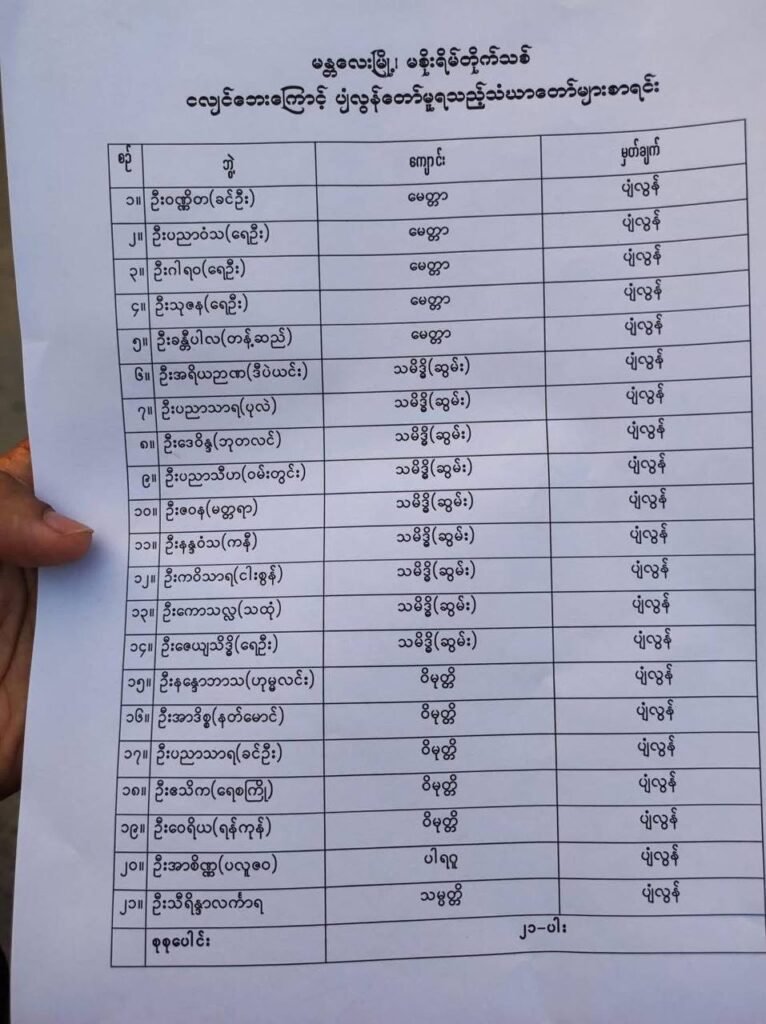 မန္တလေးမြို့၊ မစိုးရိမ်တိုက်သစ်
ငလျင်ဘေးကြောင့် ပျံလွန်တော်မူရသည့်သံဃာတော်များစာရင်း
စဉ် ဘွဲ့ ကျောင်း မှတ်ချက်
၁။ ဦးဝဏ္ဏိတ(ခင်ဦး) မေတ္တာ ပျံလွန်
၂။ ဦးပညာဝံသ(ရေဦး) မေတ္တာ ပျံလွန်
၃။ ဦးဂါရဝ(ရေဦး) မေတ္တာ ပျံလွန်
၄။ ဦးသုဇန(ရေဦး) မေတ္တာ ပျံလွန်
၅။ ဦးခန္တီပါလ(တန့်ဆည်) မေတ္တာ ပျံလွန်
၆။ ဦးအရိယဉာဏ(ဒီပဲယင်း) သမိဒ္ဓိ(ဆွမ်း) ပျံလွန်
၇။ ဦးပညာသာရ(ပုလဲ) သမိဒ္ဓိ(ဆွမ်း) ပျံလွန်
၈။ ဦးဒေဝိန္ဒ(ဘုတလင်) သမိဒ္ဓိ(ဆွမ်း) ပျံလွန်
၉။ ဦးပညာသီဟ(ဝမ်းတွင်း) သမိဒ္ဓိ(ဆွမ်း) ပျံလွန်
၁၀။ ဦးဇဝန(မတ္တရာ) သမိဒ္ဓိ(ဆွမ်း) ပျံလွန်
၁၁။ ဦးနန္ဒဝံသ(ကနီ) သမိဒ္ဓိ(ဆွမ်း) ပျံလွန်
၁၂။ ဦးကဝိသာရ(ငါးစွန်) သမိဒ္ဓိ(ဆွမ်း) ပျံလွန်
၁၃။ ဦးကောသလ္လ(သထုံ) သမိဒ္ဓိ(ဆွမ်း) ပျံလွန်
၁၄။ ဦးဇေယျသိဒ္ဓိ(ရေဦး) သမိဒ္ဓိ(ဆွမ်း) ပျံလွန်
၁၅။ ဦးနန္ဒောဘာသ(ဟုမ္မလင်း) ဝိမုတ္တိ ပျံလွန်
၁၆။ ဦးအာဒိစ္စ(နတ်မောင်) ဝိမုတ္တိ ပျံလွန်
၁၇။ ဦးပညာသာရ(ခင်ဦး) ဝိမုတ္တိ ပျံလွန်
၁၈။ ဦးဧသိက(ရေစကြို) ဝိမုတ္တိ ပျံလွန်
၁၉။ ဦးဝေရိယ(ရန်ကုန်) ဝိမုတ္တိ ပျံလွန်
၂၀။ ဦးအာစိဏ္ဏ(ပလူဇဝ) ပါရဂူ ပျံလွန်
၂၁။ ဦးသီရိန္ဒာလင်္ကာရ သမ္ပတ္တိ ပျံလွန်
စုစုပေါင်း ၂၁-ပါး